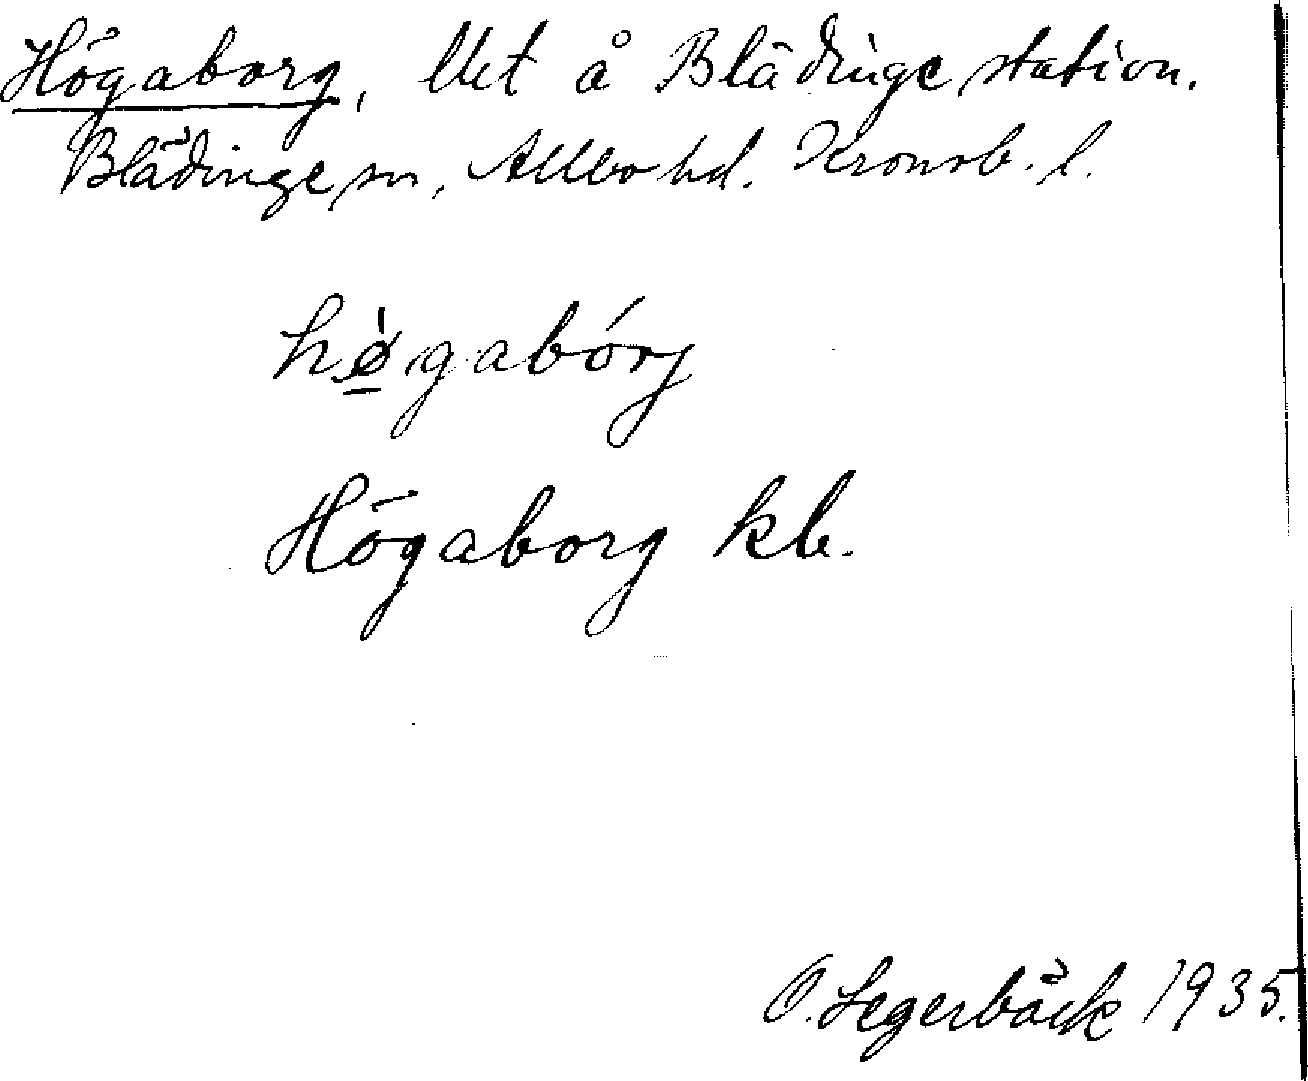 Högaborg, lht å Blädinge station.
Blädinge sn, Allbo hd. Kronob. l.
hø̀gabórj
Högaborg kb.
O. Segerbäck 1935.